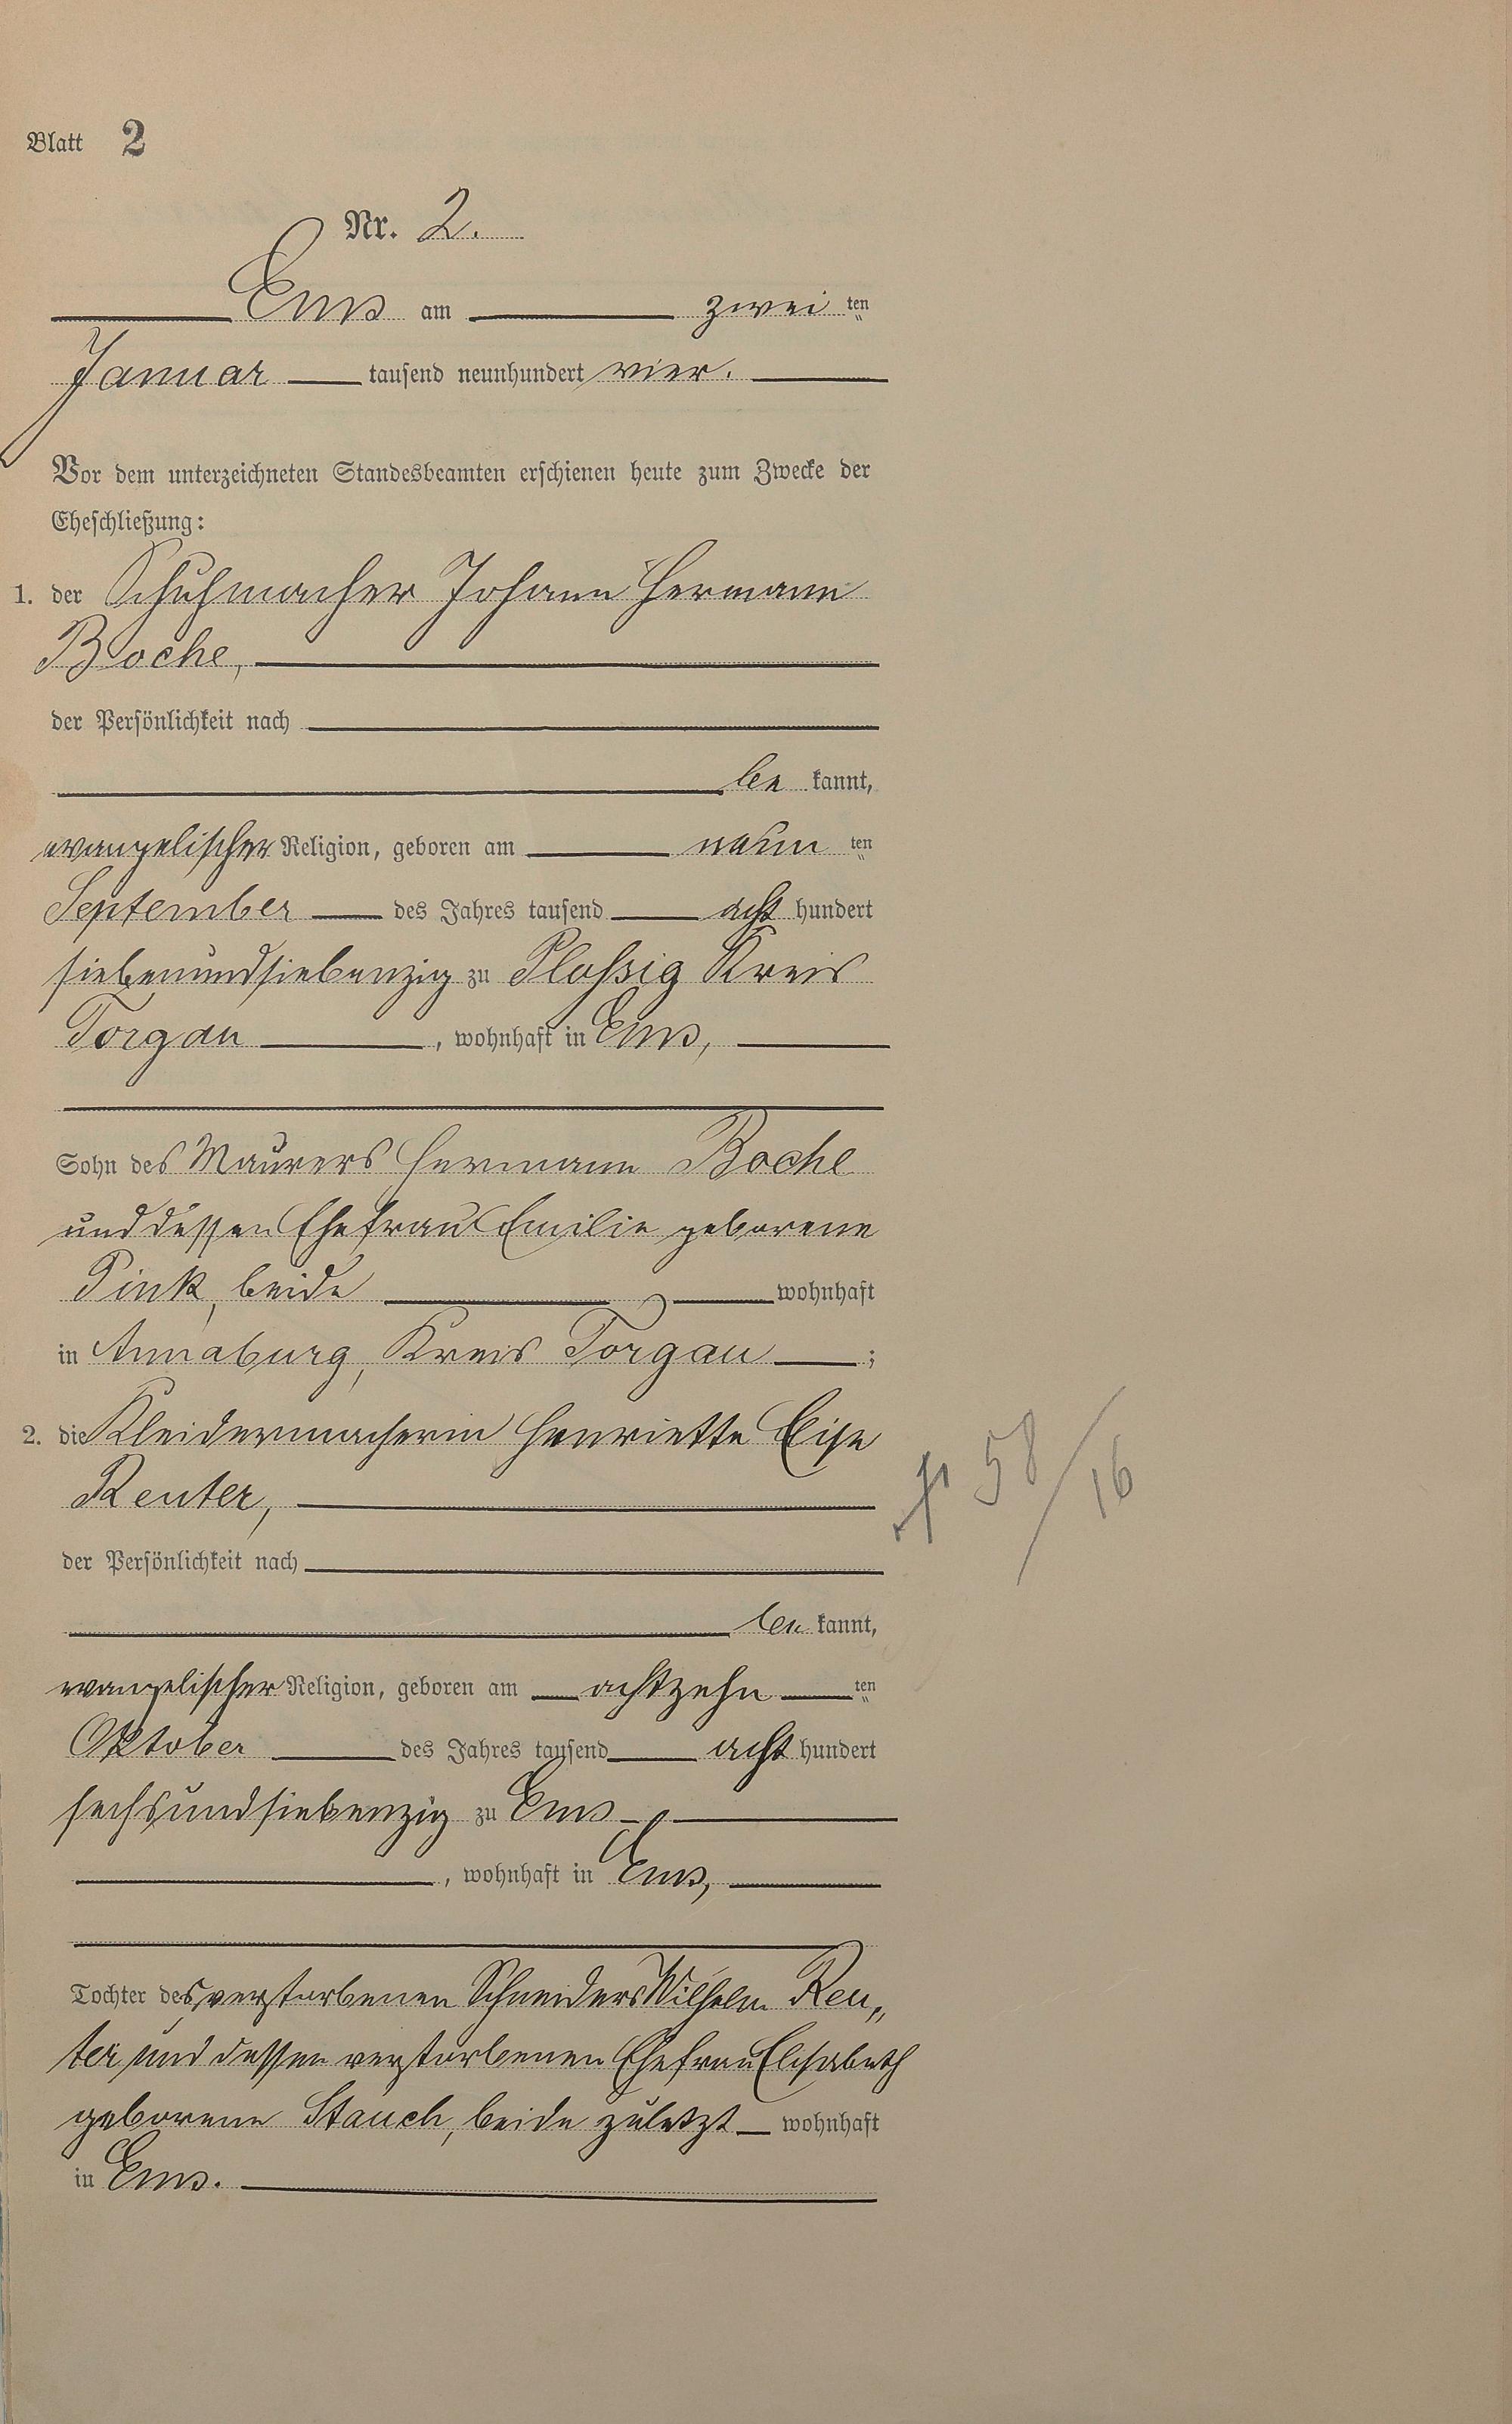 Blatt 2
Nr. 2.
Ems am zwei ten
Januar tausend neunhundert vier.
Vor dem unterzeichneten Standesbeamten erschienen heute zum Zwecke der
Eheschließung:
1. der Schuhmacher Johann Hermann
Boche,
der Persönlichkeit nach
be kannt,
evangelischer Religion, geboren am neun ten
September des Jahres tausend acht hundert
siebenundsiebenzig zu Ploßsig Kreis
Torgau, wohnhaft in Ems,
Sohn des Maurers Hermann Boche
und dessen Ehefrau Emilie geborene
Pink, beide wohnhaft
in Annaburg, Kreis Torgau ;
2. die Kleidermacherin Henriette Elise
Reuter,
der Persönlichkeit nach
be kannt,
evangelischer Religion, geboren am achtzehn ten
Oktober des Jahres tausend acht hundert
sechsundsiebenzig zu Ems
, wohnhaft in Ems,
Tochter des verstorbenen Schneiders Wilhelm Reu„
ter und dessen verstorbenen Ehefrau Elisabeth
geborene Stauch, beide zuletzt wohnhaft
in Ems.
58/16